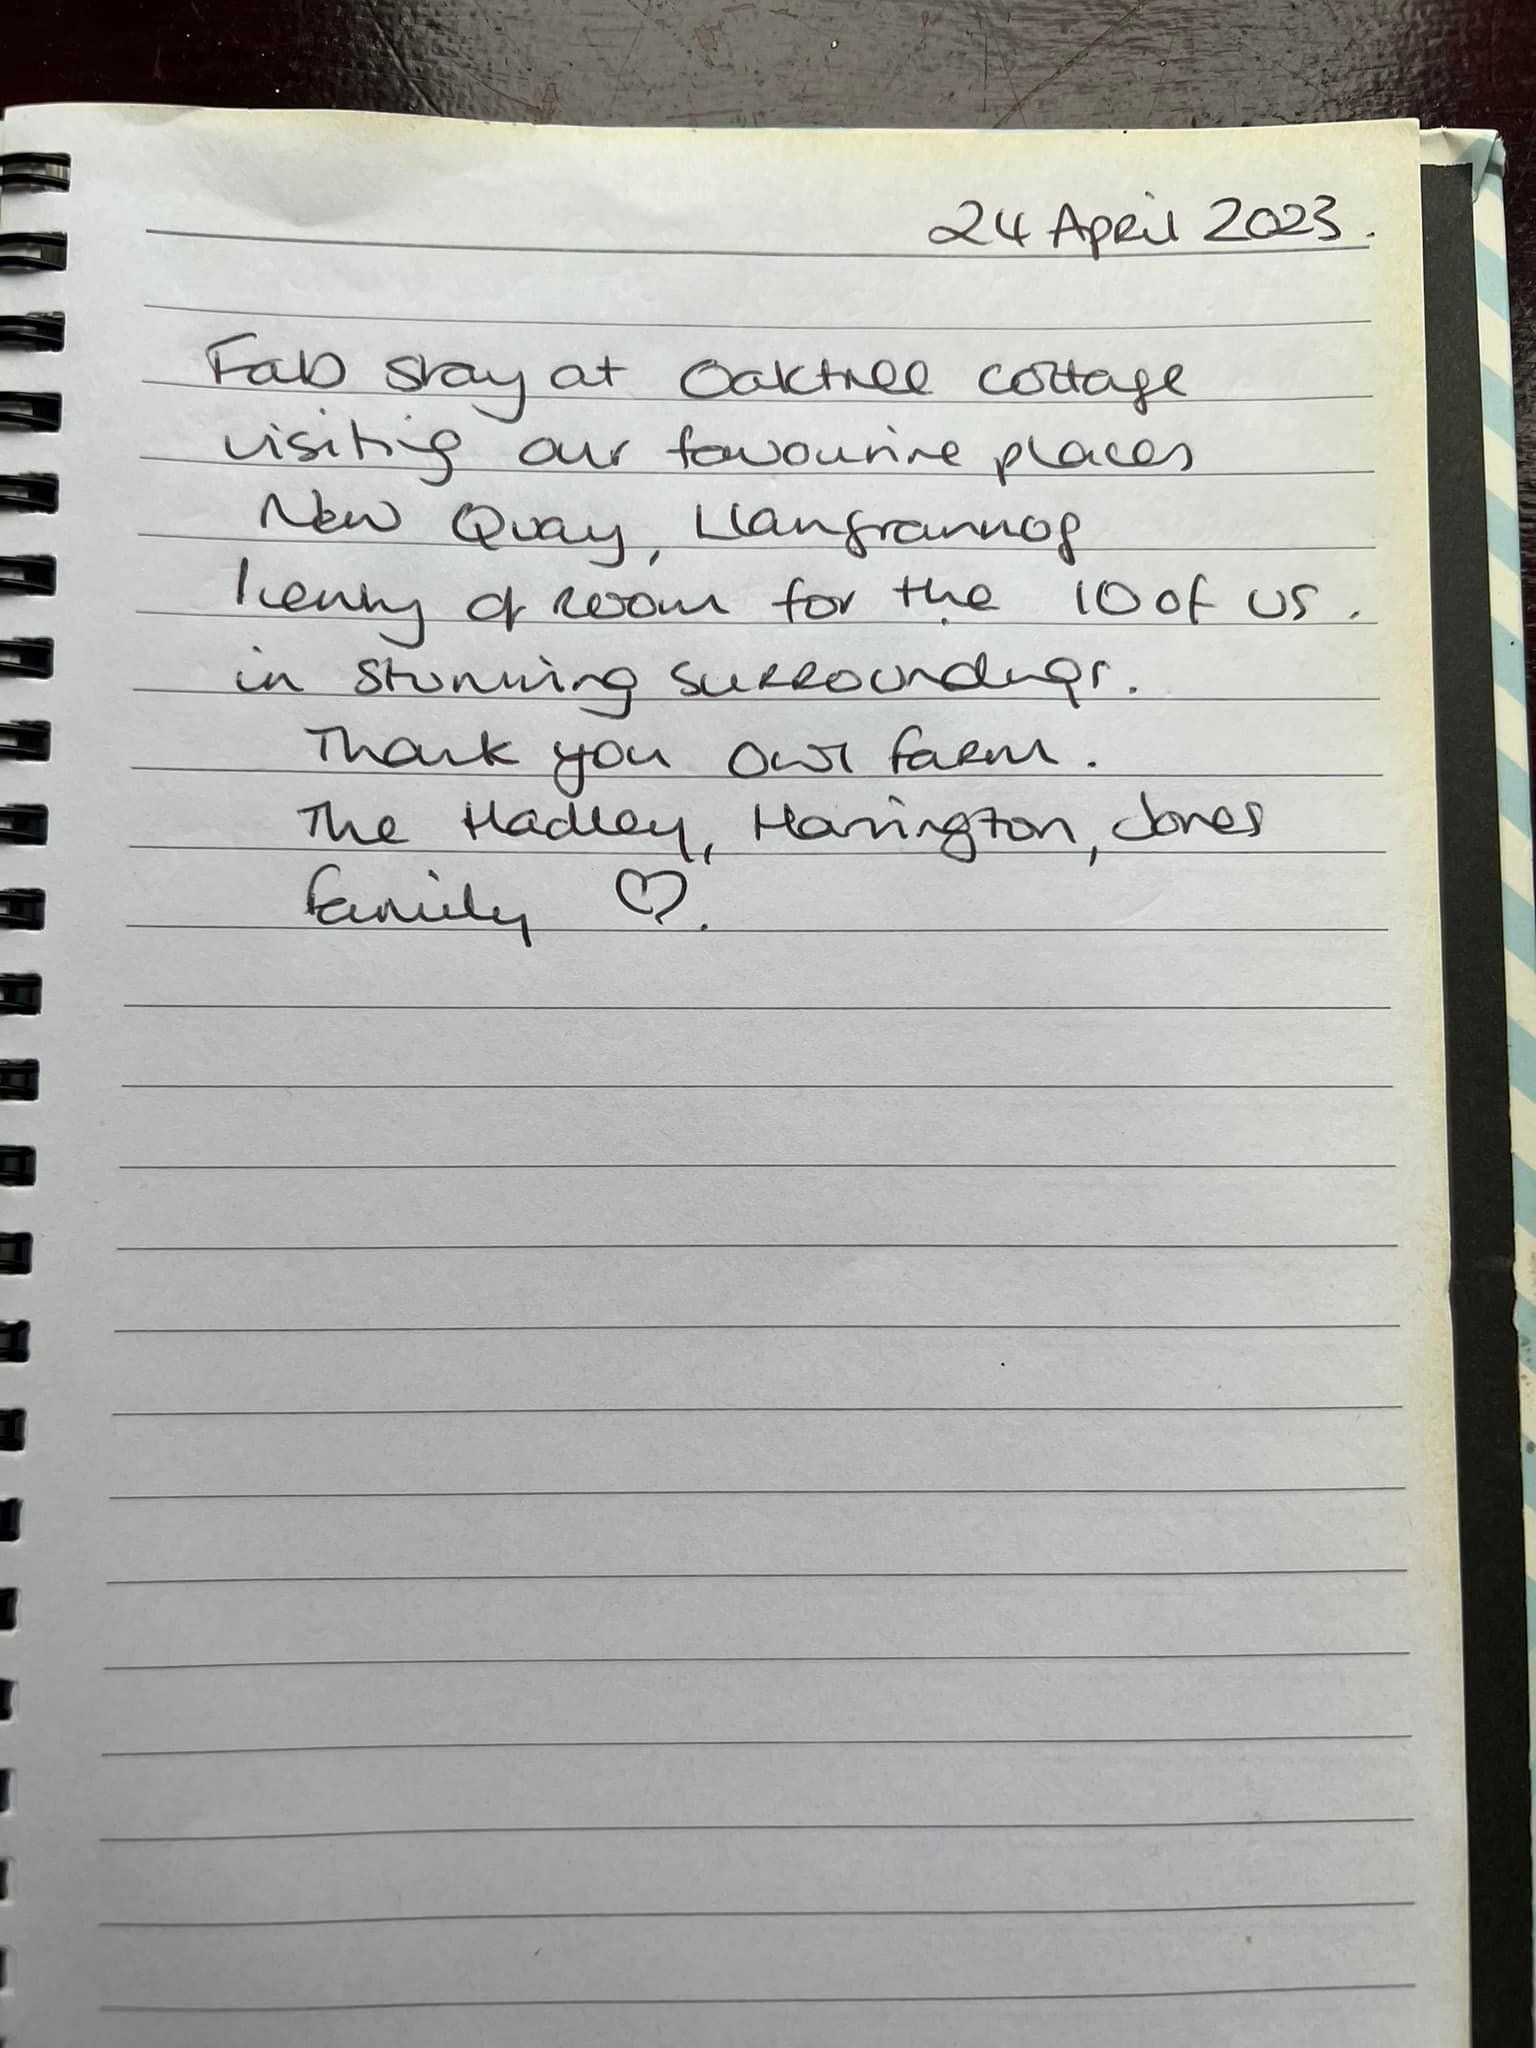 24 April 2023.
Fab stay at Oaktree cottage
visiting our favourite places
New Quay, Llangrannog
Plenty of room for the 10 of us.
in stunning surroundings.
Thank you Owl farm.
The Hadley, Harrington, Jones
family ♡.